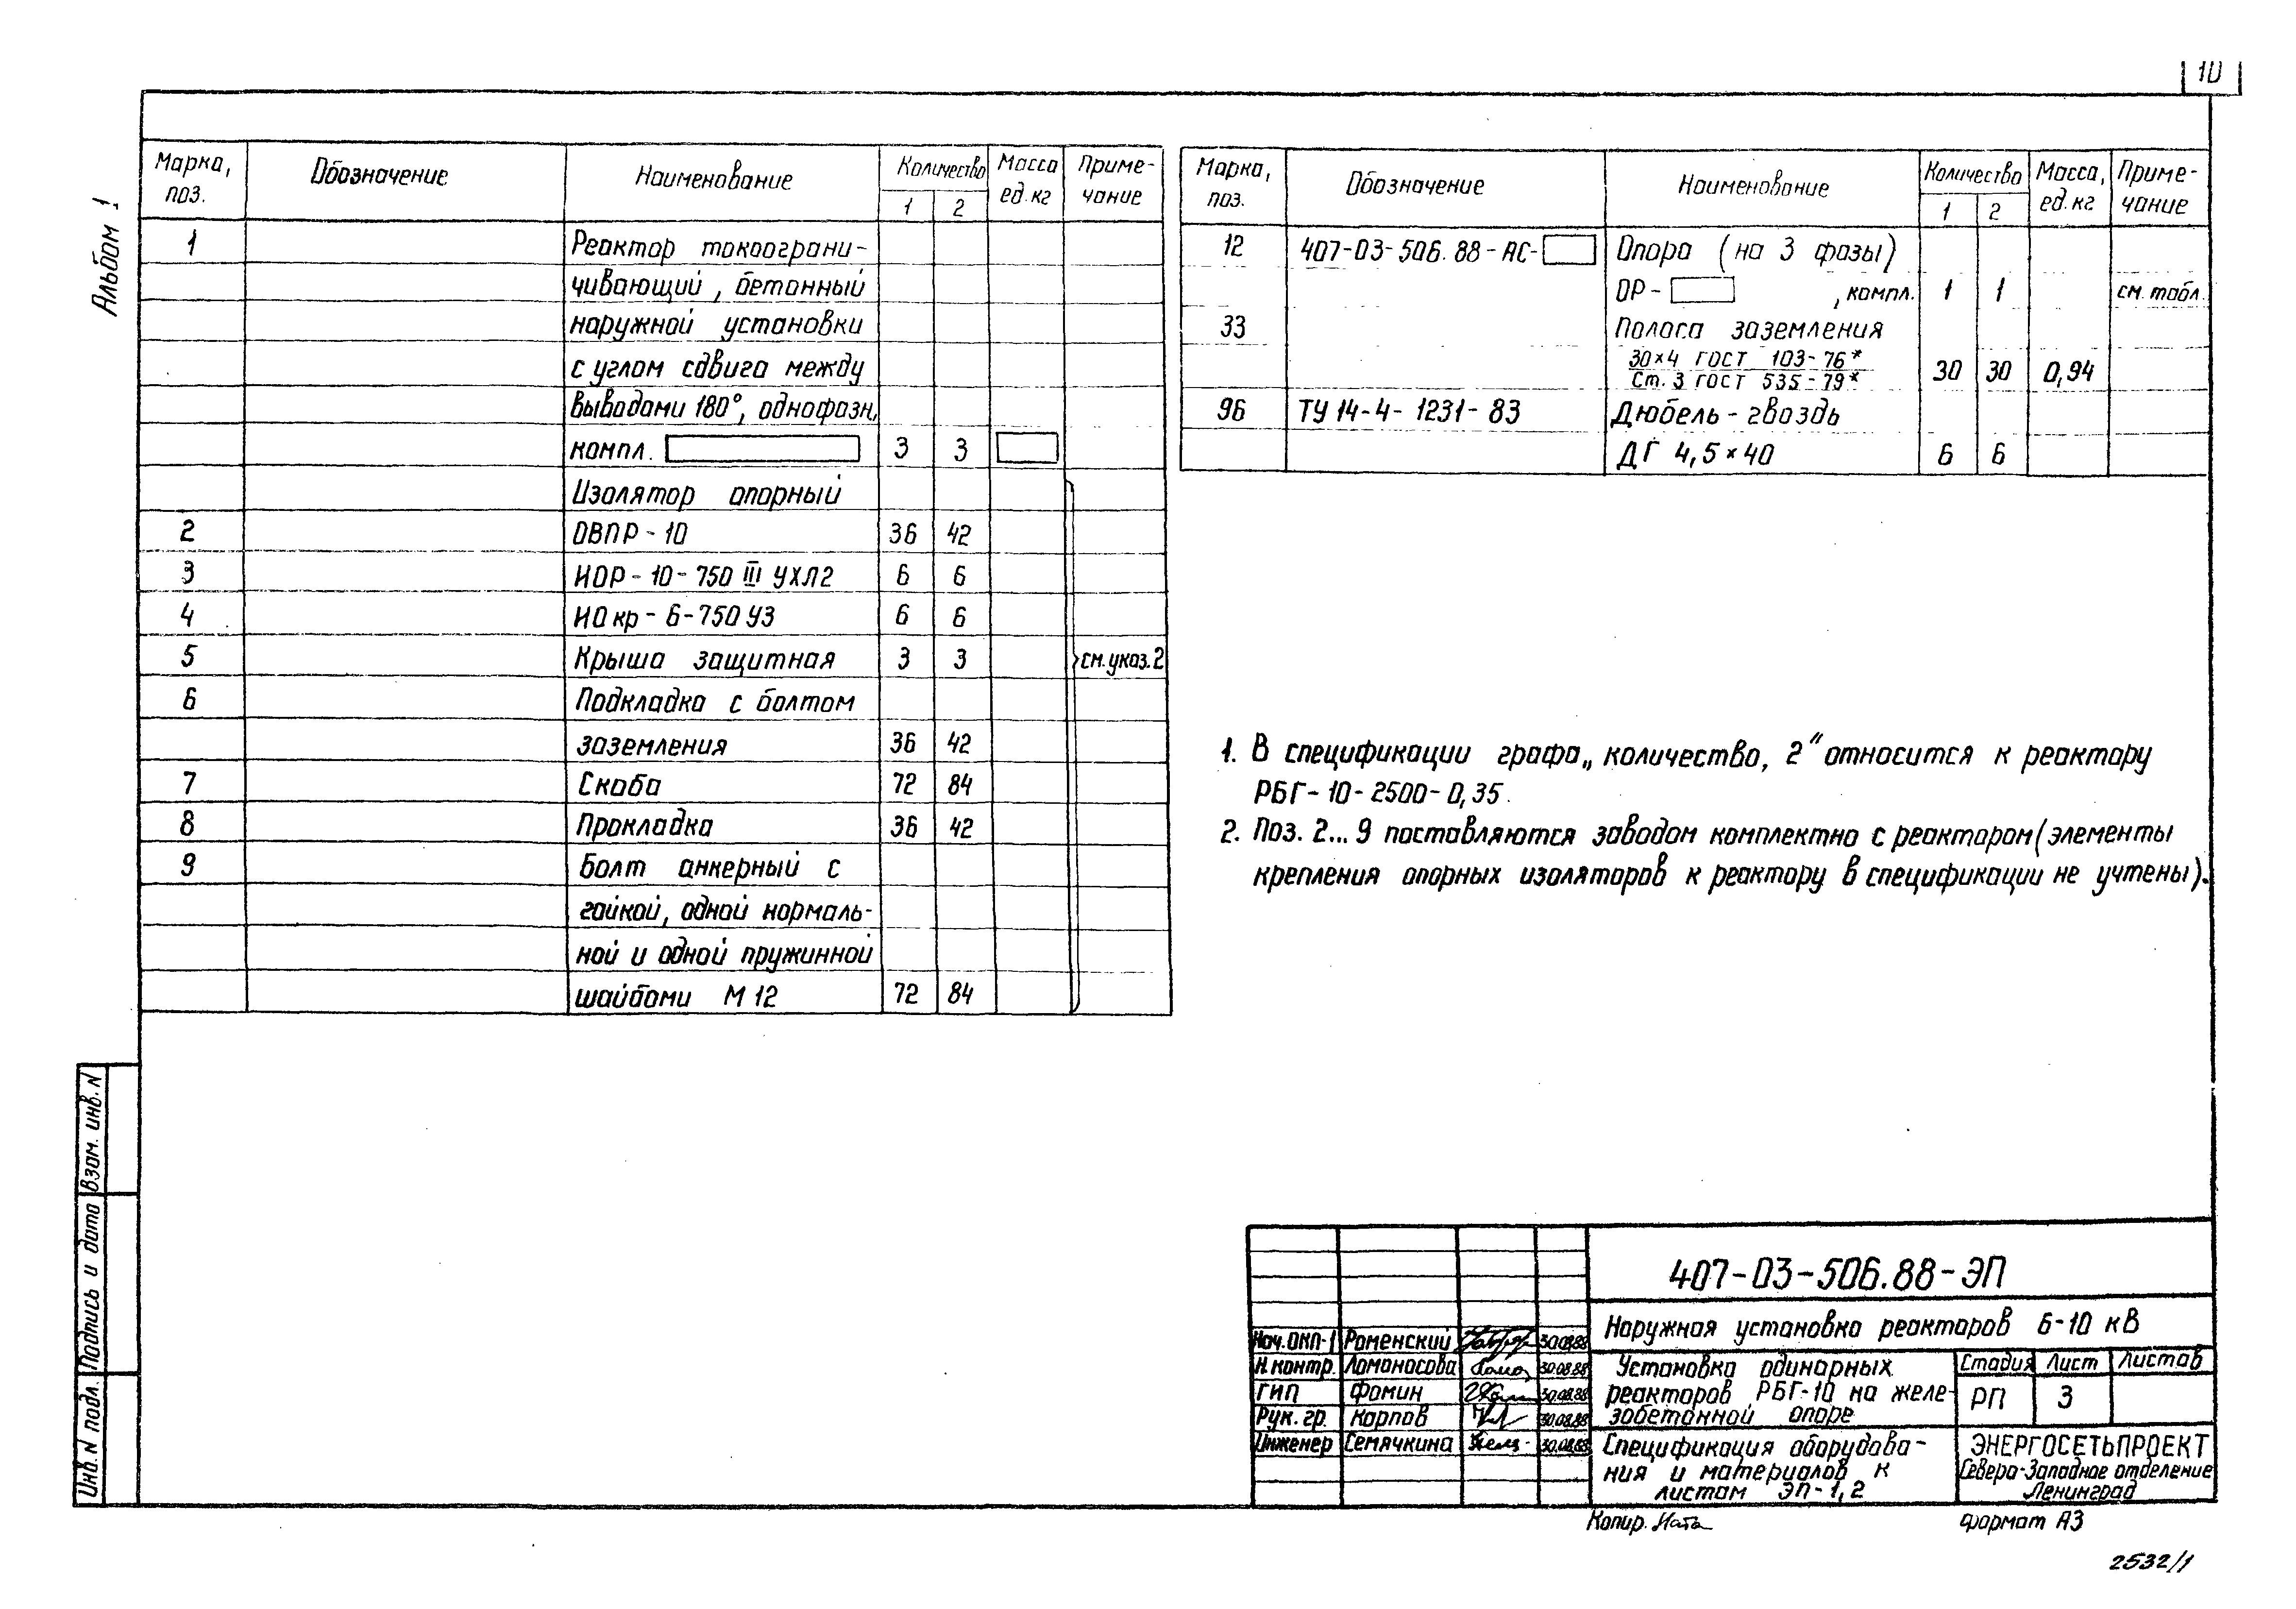 10
Альбом 1
Марка, поз. Обозначение Наименование Количество 1 2 Масса ед. кг Примечание
1 Реактор токоограни-
чивающий, бетонный
наружной установки
с углом сдвига между
выводами 180°, однофазн.
компл. 3 3
Изолятор опорный
2 ОВПР-10 36 42
3 ИОР-10-750 III УХЛ2 6 6
4 ИОкр-6-750 У3 6 6
5 Крыша защитная 3 3 см. указ. 2
6 Подкладка с болтом
заземления 36 42
7 Скоба 72 84
8 Прокладка 36 42
9 Болт анкерный с
гайкой, одной нормаль-
ной и одной пружинной
шайбами М12 72 84
Марка, поз. Обозначение Наименование Количество 1 2 Масса, ед. кг Примечание
12 407-03-506.88-АС- Опора (на 3 фазы)
ОР- , компл. 1 1 см. табл.
33 Полоса заземления
30×4 ГОСТ 103-76*
Ст. 3 ГОСТ 535-79* 30 30 0,94
96 ТУ 14-4-1231-83 Дюбель-гвоздь
ДГ 4,5×40 6 6
1. В спецификации графа „количество, 2" относится к реактору
РБГ-10-2500-0,35.
2. Поз. 2...9 поставляются заводом комплектно с реактором (элементы
крепления опорных изоляторов к реактору в спецификации не учтены).
Взам. инв. N
Подпись и дата
Инв. N подл.
407-03-506.88-ЭП
Наружная установка реакторов 6-10 кВ
Нач. ОКП-1 Роменский 30.08.88
Н. контр. Ломоносова 30.08.88
ГИП Фомин 30.08.88
Рук. гр. Карпов 30.08.88
Инженер Семячкина 30.08.88
Установка одинарных
реакторов РБГ-10 на желе-
зобетонной опоре
Стадия Лист Листов
РП 3
Спецификация оборудова-
ния и материалов к
листам ЭП-1,2
ЭНЕРГОСЕТЬПРОЕКТ
Северо-Западное отделение
Ленинград
Копир. Ната
формат А3
2532/1